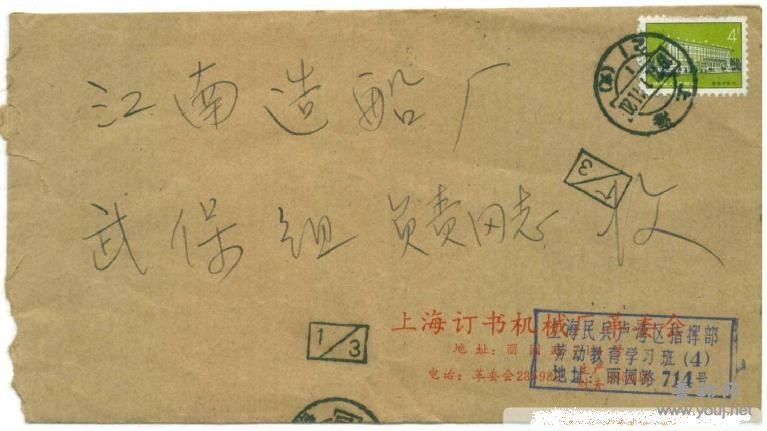 4
江南造船厂
武保组 负责同志 收
1/3
1/3
上海订书机械厂革委会
地址：丽园路
电话：革委会
上海民兵卢湾区指挥部
劳动教育学习班(4)
地址：丽园路 714号
www.youj.net